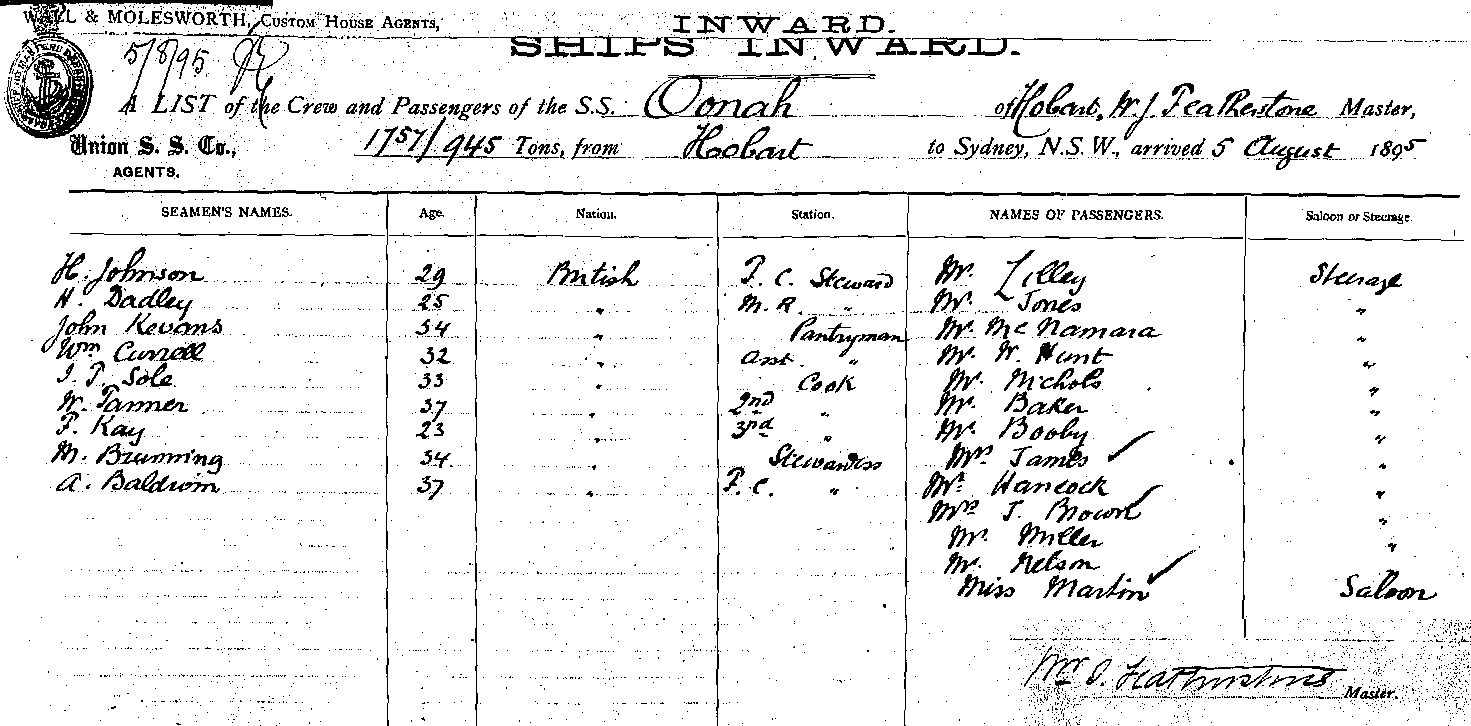 WALL & MOLESWORTH, CUSTOM HOUSE AGENTS,
INWARD.
SHIPS INWARD.
5/8/95
A LIST of the Crew and Passengers of the S.S. Oonah of Hobart, W. J. Featherstone Master,
Union S. S. Co., 1757/945 Tons, from Hobart to Sydney, N.S.W., arrived 5 August 1895
AGENTS.
SEAMEN'S NAMES. Age. Nation. Station. NAMES OF PASSENGERS. Saloon or Steerage.
H. Johnson 29 British F. C. Steward Mr. Lilley Steerage
H. Dadley 25 " M. R. " Mr. Jones "
John Kevans 54 " Pantryman Mr. McNamara "
Wm Currell 32 " Asst. " Mr. W. Hunt "
I. P. Sole 33 " Cook Mr. Nichols "
W. Tanner 37 " 2nd " Mr. Baker "
F. Kay 23 " 3rd " Mr. Booby "
M. Brunning 34 " Stewardess Mrs James "
A. Baldwin 37 " F. C. " Mr. Hancock "
Mrs J. Brown "
Mr. Miller "
Mr. Nelson
Miss Martin Saloon
Featherstone Master.